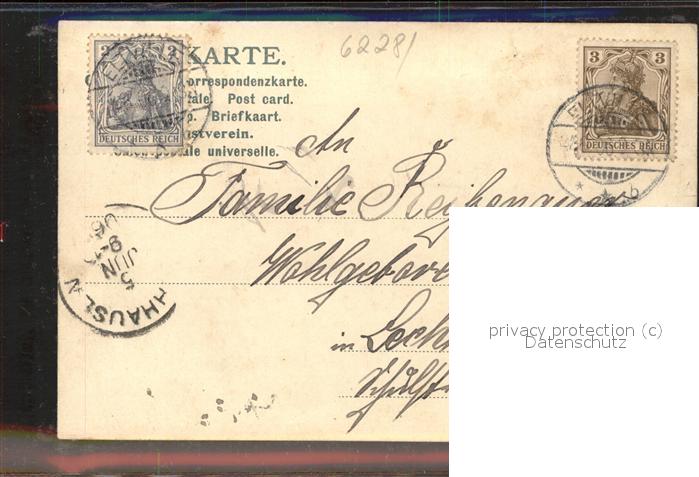 KARTE.
62281
orrespondenzkarte.
ale. Post card.
p. Briefkaart.
stverein.
ale universelle.
2 2
DEUTSCHES REICH
3 3
DEUTSCHES REICH
An
Familie
Wohlgebore
in Lech
Schulst
5
JUN
HAUS N
privacy protection (c)
Datenschutz